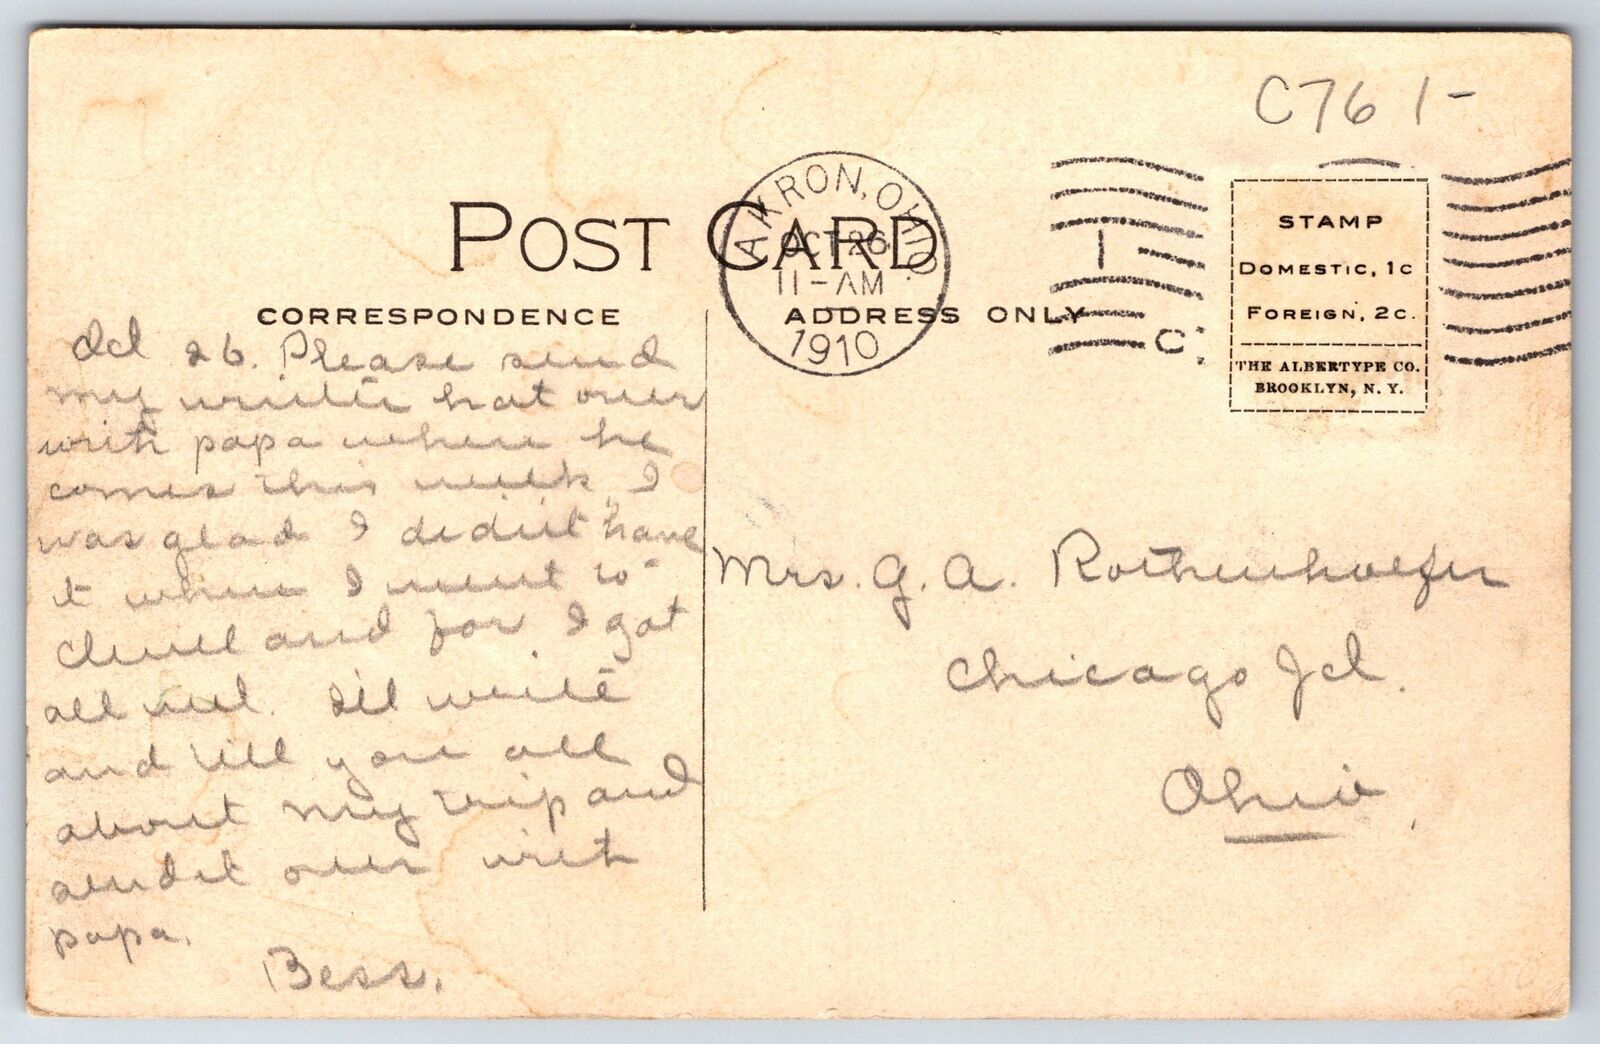 C76 1-
POST CARD
CORRESPONDENCE
ADDRESS ONLY
AKRON, OHIO.
OCT 26
11-AM
1910
1
C
STAMP
DOMESTIC, 1C
FOREIGN, 2C.
THE ALBERTYPE CO.
BROOKLYN, N. Y.
Oct 26. Please send
my winter hat over
with papa when he
comes this week. I
was glad I didn't have
it when I went to
and for I got
all wet. I'll write
and tell you all
about my trip and
send it over with
papa.
Bess.
Mrs. G. A. Rothenhoefer
Chicago Jct.
Ohio,